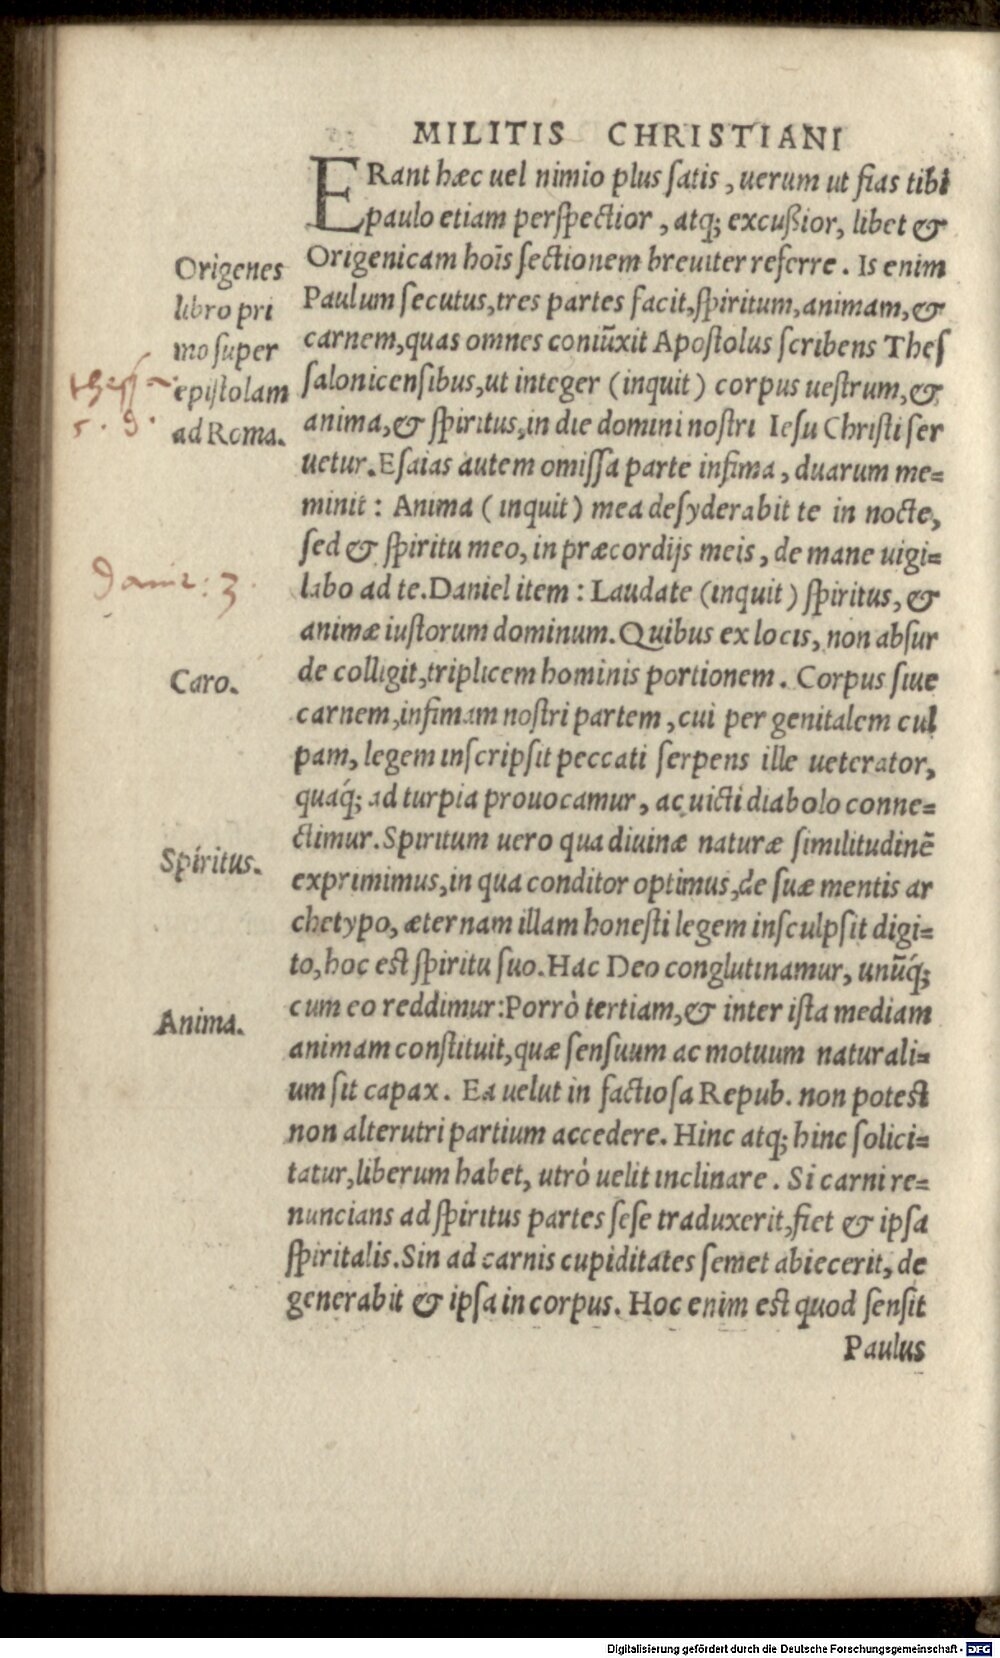 MILITIS CHRISTIANI
ERant hæc uel nimio plus satis, uerum ut fias tibi
paulo etiam perspectior, atq; excußior, libet &
Origenicam hoīs sectionem breuiter referre. Is enim
Paulum secutus, tres partes facit, spiritum, animam, &
carnem, quas omnes coniūxit Apostolus scribens Thes
salonicensibus, ut integer (inquit) corpus uestrum, &
anima, & spiritus, in die domini nostri Iesu Christi ser
uetur. Esaias autem omissa parte infima, duarum me=
minit: Anima (inquit) mea desyderabit te in nocte,
sed & spiritu meo, in præcordijs meis, de mane uigi=
labo ad te. Daniel item: Laudate (inquit) spiritus, &
animæ iustorum dominum. Quibus ex locis, non absur
de colligit, triplicem hominis portionem. Corpus siue
carnem, infimam nostri partem, cui per genitalem cul
pam, legem inscripsit peccati serpens ille ueterator,
quaq́; ad turpia prouocamur, ac uicti diabolo conne=
ctimur. Spiritum uero qua diuinæ naturæ similitudinē
exprimimus, in qua conditor optimus, de suæ mentis ar
chetypo, æternam illam honesti legem insculpsit digi=
to, hoc est spiritu suo. Hac Deo conglutinamur, unūq́;
cum eo reddimur: Porrò tertiam, & inter ista mediam
animam constituit, quæ sensuum ac motuum naturali=
um sit capax. Ea uelut in factiosa Repub. non potest
non alterutri partium accedere. Hinc atq; hinc solici=
tatur, liberum habet, utrò uelit inclinare. Si carni re=
nuncians ad spiritus partes sese traduxerit, fiet & ipsa
spiritalis. Sin ad carnis cupiditates semet abiecerit, de
generabit & ipsa in corpus. Hoc enim est quod sensit
Paulus
Origenes
libro pri
mo super
epistolam
ad Roma.
thess
5. 9.
Dani: 3.
Caro.
Spíritus.
Anima.
Digitalisierung gefördert durch die Deutsche Forschungsgemeinschaft - DFG